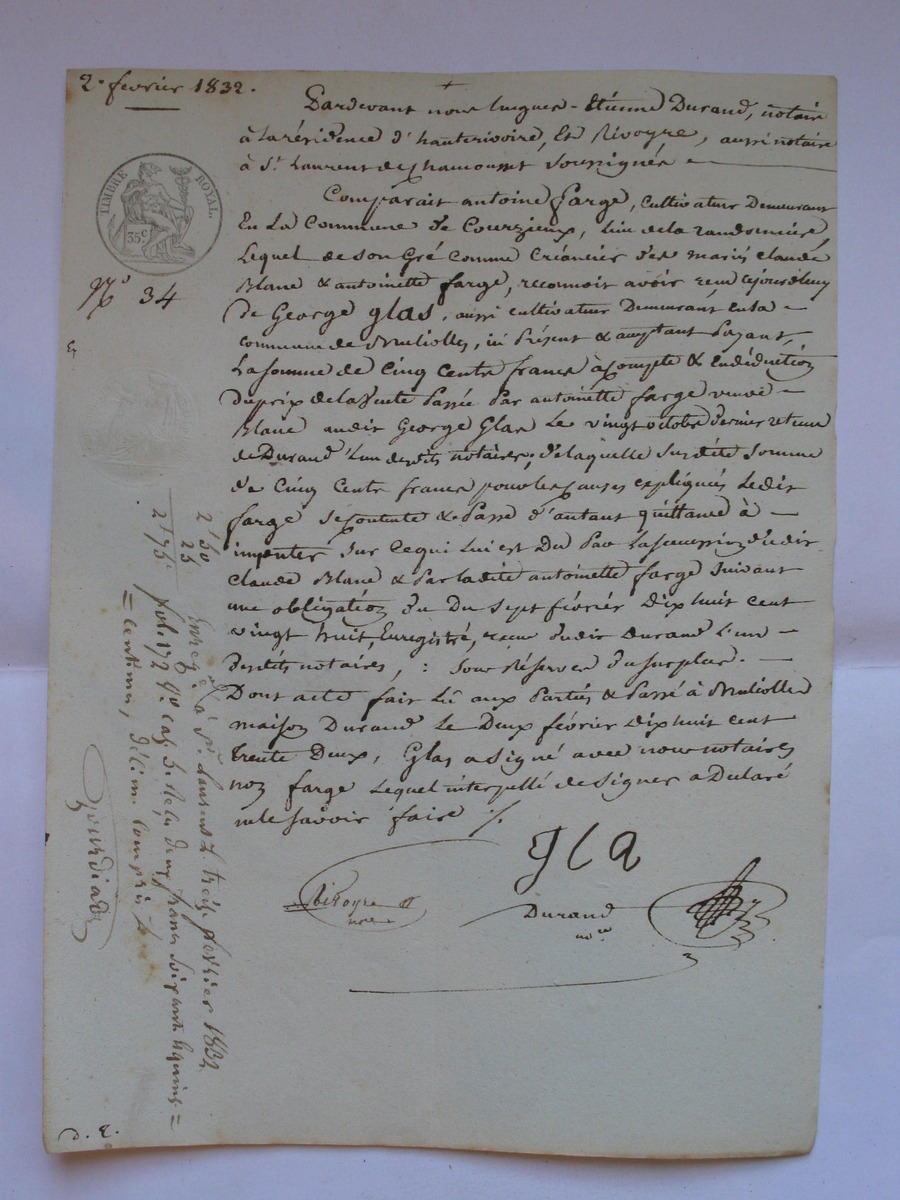 2. fevrier 1832.
Pardevant nous hugues-Etienne Durand, notaire
à la résidence d'hauterivoire, Et Rivoyre, aussi notaire
à St. Laurent de Chamousset soussignés
TIMBRE ROYAL.
35 c
Comparait antoine farge, cultivateur Demeurant
En La Commune de Courzieux, Lieu de la
Lequel de son Gré comme Créancier des mariés Claude
Blanc & antoinette farge, reconnoit avoir recu cejourdhuy
No 34
De George glas, aussi cultivateur Demeurant en la
commune de Brullolles, ici Présent & acceptant Payant,
La somme de Cinq Cents francs à compte & En déduction
Du prix de la Vente Passée Par antoinette farge veuve
Blanc audit George Glas Le vingt octobre dernier
de Durand L'un desdits notaires, de laquelle susdite somme
de Cinq Cents francs pour les causes expliquées Ledit
farge se contente & Passe d'autant quittance à
imputer sur ce qui Lui est Du Par La succession dudit
Claude Blanc & Par ladite antoinette farge suivant
une obligation du Du sept février Dix huit cent
vingt huit, Enregistré, recue dudit Durand L'un
desdits notaires, : sous Réserve du surplus.
Dont acte fait Lû aux Parties & Passé à Brullolles
maison Durand Le Deux février Dix huit cent
trente Deux, Glas a signé avec nous notaires
non farge Lequel interpellé de signer a Déclaré
ne le savoir faire ./.
gla
Rivoyre
nore
Durand
nore
2f 50
25
2f 75c
Enreg. à St. Laurent L. treize fevrier 1832
fol. 172 Vo. cas. 3. deux francs soixante quinze =
= centimes, décime compris
d. E.